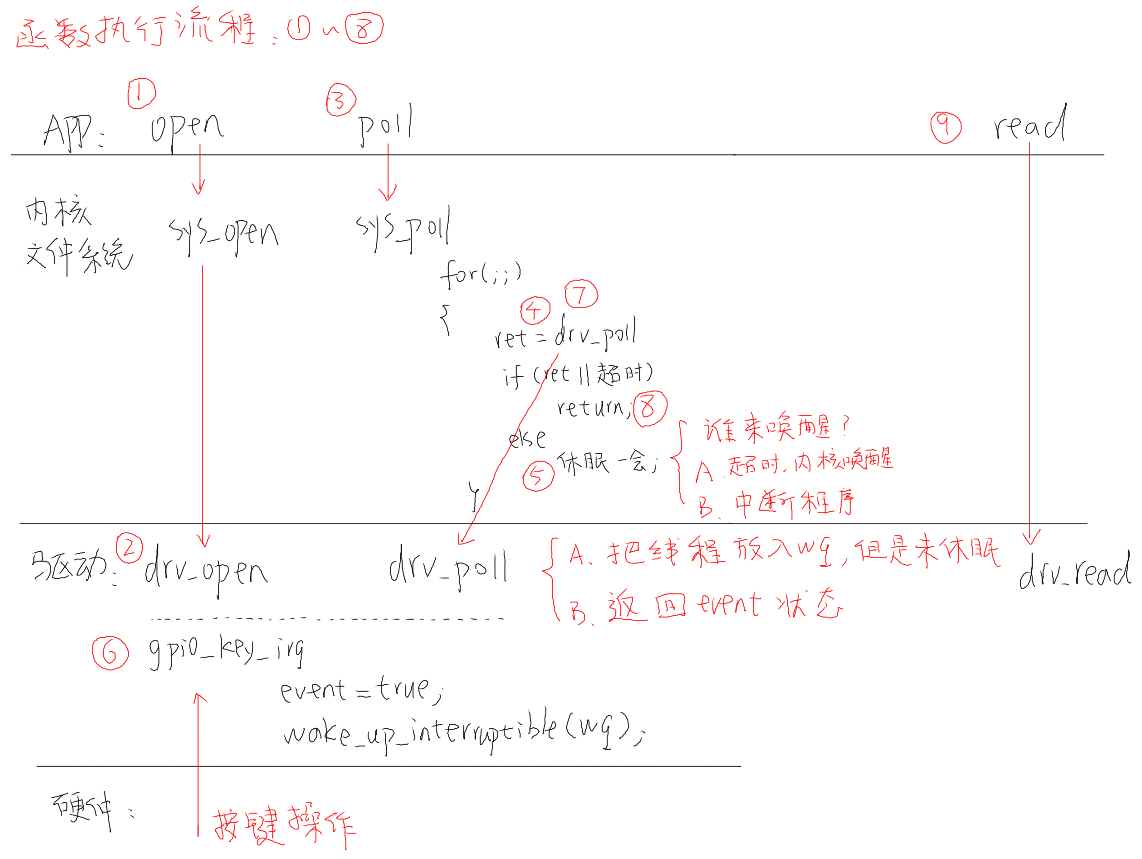 函数执行流程：①~⑧
① ③ ⑨
APP： open poll read
内核
文件系统
sys_open sys_poll
for(;;)
{
④ ⑦
ret = drv_poll
if (ret || 超时)
return; ⑧
else
⑤ 休眠一会;
谁来唤醒？
A. 超时，内核唤醒
B. 中断程序
y
驱动： ② drv_open drv_poll drv_read
A. 把线程放入wq，但是未休眠
B. 返回event状态
⑥ gpio_key_irq
event = true;
wake_up_interruptible(wq);
硬件：
按键操作